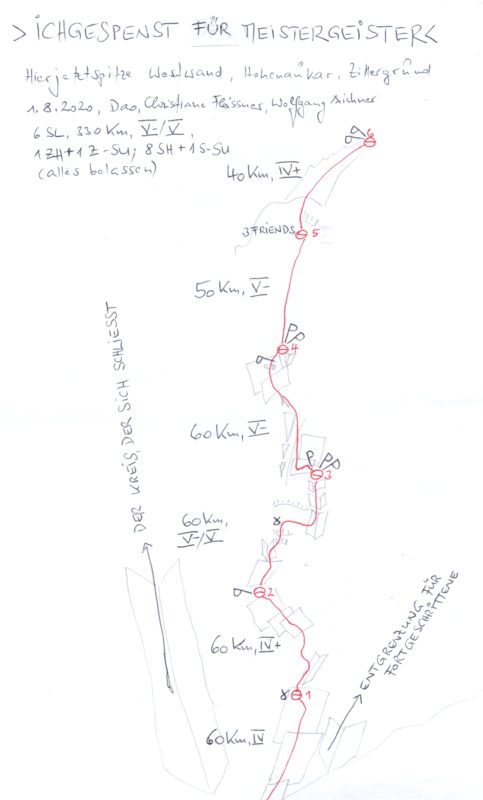 >ICHGESPENST FÜR MEISTERGEISTER<
Hierjetztspitze Westwand, Hohenaukar, Zillergrund
1.8.2020, Dao, Christiane Flössner, Wolfgang Aichner
6 SL, 330 Km, V-/V,
1 ZH+1 Z-SU; 8SH+1S-SU
(alles belassen)
6
40 Km, IV+
3 FRIENDS
5
50 Km, V-
4
60 Km, V-
3
60 Km,
V-/V
2
60 Km, IV+
1
60 Km, IV
DER KREIS, DER SICH SCHLIESST
ENTGRENZUNG FÜR
FORTGESCHRITTENE